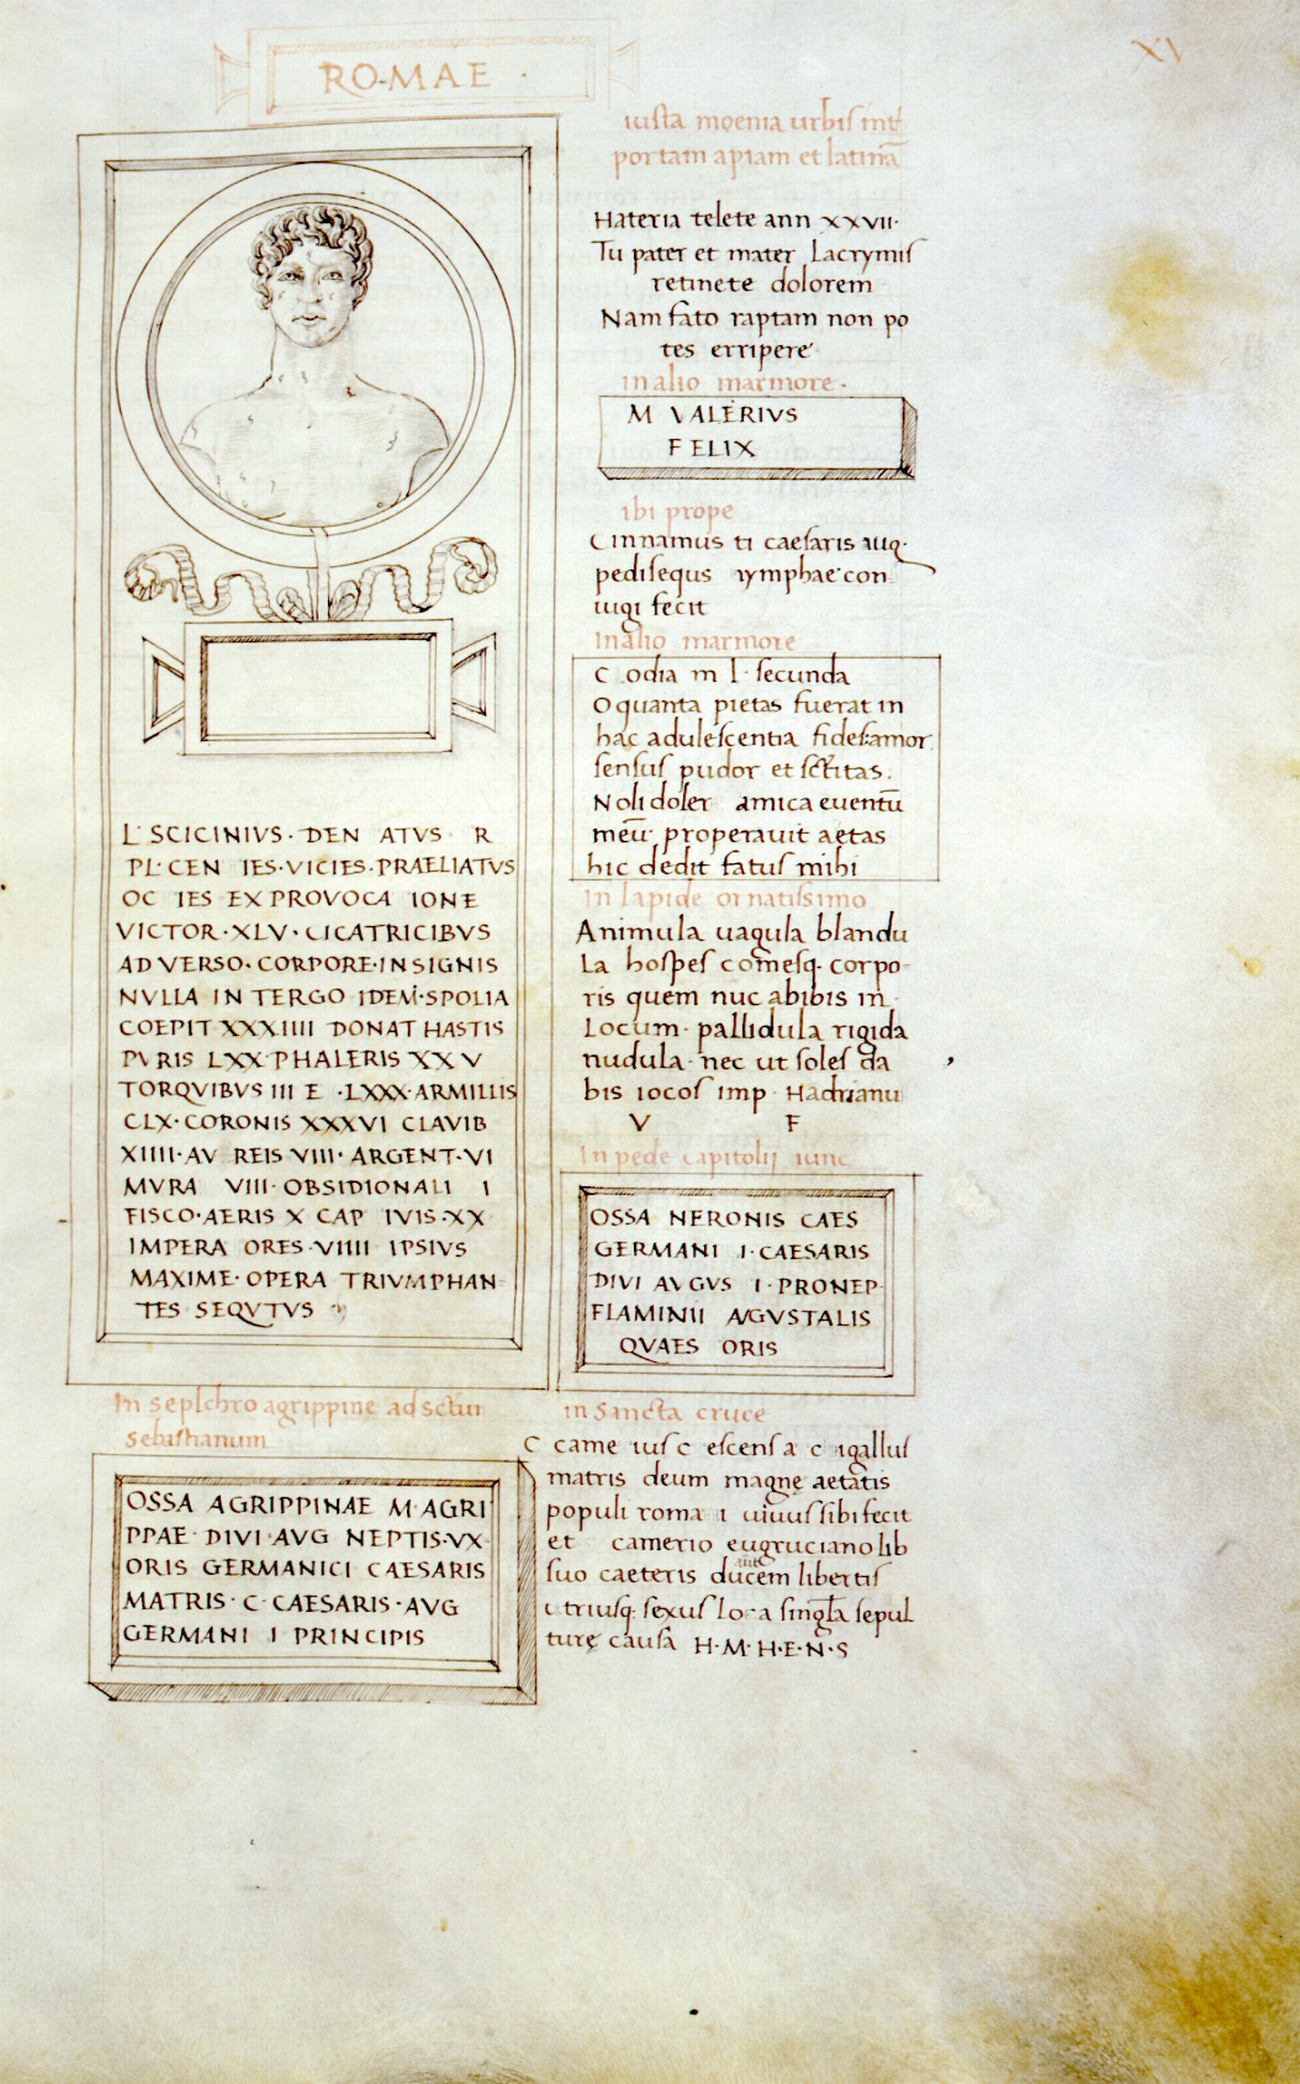 XV
ROMAE ·
L· SCICINIVS · DEN ATVS R
PL· CEN IES · VICIES · PRAELIATVS
OC IES EX PROVOCA IONE
VICTOR · XLV · CICATRICIBVS
ADVERSO · CORPORE · INSIGNIS
NVLLA IN TERGO IDEM · SPOLIA
COEPIT XXXIIII DONAT HASTIS
PVRIS LXX PHALERIS XXV
TORQVIBVS III E · LXXX · ARMILLIS
CLX · CORONIS XXXVI CLAVIB
XIIII · AV REIS VIII · ARGENT · VI
MVRA VIII · OBSIDIONALI I
FISCO · AERIS X CAP IVIS · XX
IMPERA ORES · VIIII IPSIVS
MAXIME · OPERA TRIVMPHAN
TES SEQVTVS
In seplchro agrippinę ad sctum
sebastianum
OSSA AGRIPPINAE M · AGRI
PPAE · DIVI · AVG NEPTIS · VX
ORIS GERMANICI CAESARIS
MATRIS · C · CAESARIS · AVG
GERMANI I PRINCIPIS
iusta moenia urbis int
portam apiam et latinā
Hateria telete ann XXVII·
Tu pater et mater Lacrymis
retinete dolorem
Nam fato raptam non po
tes erripere
in alio marmore ·
M VALERIVS
FELIX
ibi prope
Cinnamus ti caesaris aug·
pedisequs nymphae con
iugi fecit
In alio marmore
C odia m l · secunda
O quanta pietas fuerat in
hac adulescentia fides: amor
sensus pudor et sctitas.
Noli doler amica euentū
meū properauit aetas
hic dedit fatus mihi
In lapide ornatissimo
Animula uagula blandu
La hospes comesq· corpo
ris quem nuc abibis in
Locum · pallidula rigida
nudula · nec ut soles da
bis iocos imp · Hadrianu
V F
In pede capitolij iunc
OSSA NERONIS CAES
GERMANI I · CAESARIS
DIVI AVGVS I · PRONEP
FLAMINII AVGVSTALIS
QVAES ORIS
in sancta cruce
C came ius c escens a c igallus
matris deum magnę aetatis
populi roma i uiuus sibi fecit
et camerio eugruciano lib
suo caeteris ducem libertis
utriusq: sexus lo a singla sepul
turę causa H·M·H·E·N·S